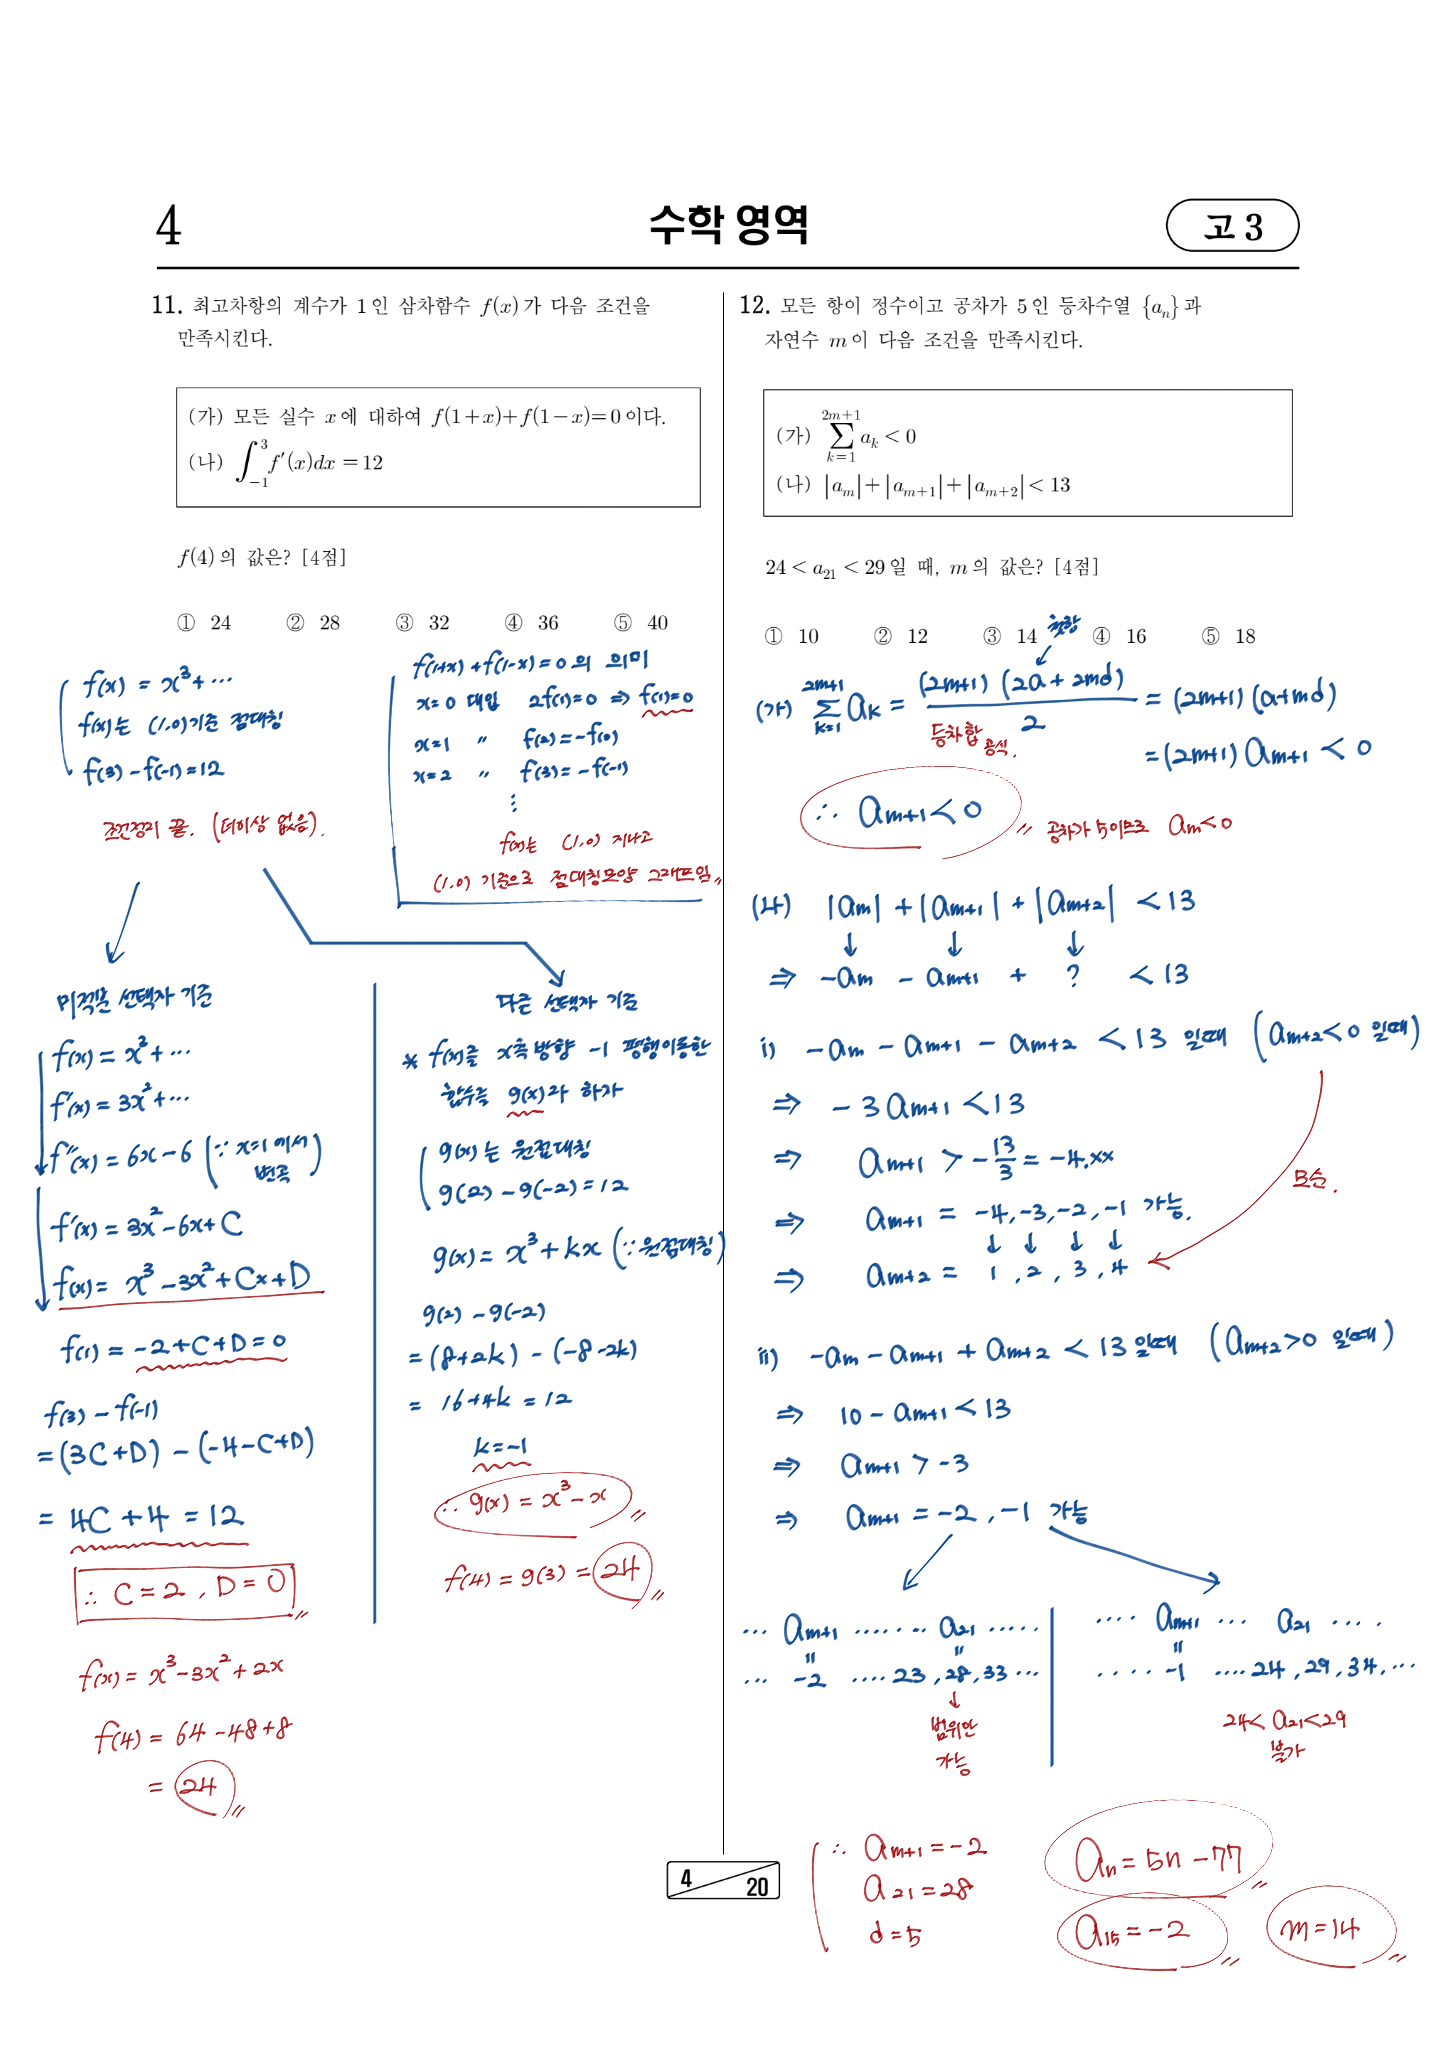 4
수학 영역
고 3
11. 최고차항의 계수가 1인 삼차함수 f(x)가 다음 조건을
만족시킨다.
(가) 모든 실수 x에 대하여 f(1+x)+f(1-x)=0이다.
(나) ∫_{-1}^{3} f′(x)dx = 12
f(4)의 값은? [4점]
① 24 ② 28 ③ 32 ④ 36 ⑤ 40
f(x) = x³+ ⋯
f(x)는 (1,0)기준 점대칭
f(3) - f(-1) = 12
조건정리 끝. (더이상 없음).
f(1+x)+f(1-x)=0의 의미
x=0 대입 2f(1)=0 ⇒ f(1)=0
x=1 〃 f(2)=-f(0)
x=2 〃 f(3)=-f(-1)
⋮
f(x)는 (1,0) 지나고
(1,0) 기준으로 점대칭모양 그래프임〃
미적분 선택자 기준
f(x) = x³+ ⋯
f′(x) = 3x²+ ⋯
f″(x) = 6x-6 (∵ x=1에서 변곡)
f′(x) = 3x²-6x+C
f(x) = x³-3x²+Cx+D
f(1) = -2+C+D=0
f(3) - f(-1)
=(3C+D) - (-4-C+D)
= 4C+4 = 12
∴ C=2, D=0〃
f(x) = x³-3x²+2x
f(4) = 64-48+8
= 24〃
다른 선택자 기준
* f(x)를 x축 방향 -1 평행이동한
함수를 g(x)라 하자
g(x)는 원점대칭
g(2) - g(-2) = 12
g(x) = x³+kx (∵원점대칭)
g(2) - g(-2)
= (8+2k) - (-8-2k)
= 16+4k = 12
k=-1
∴ g(x) = x³-x〃
f(4) = g(3) = 24〃
4
20
12. 모든 항이 정수이고 공차가 5인 등차수열 {a_n}과
자연수 m이 다음 조건을 만족시킨다.
(가) ∑_{k=1}^{2m+1} a_k < 0
(나) |a_m|+|a_{m+1}|+|a_{m+2}|< 13
24 < a_{21} < 29일 때, m의 값은? [4점]
① 10 ② 12 ③ 14 ④ 16 ⑤ 18
첫항
(가) ∑_{k=1}^{2m+1} a_k = (2m+1)(2a+2md)/2 = (2m+1)(a+md)
등차합 공식.
=(2m+1) a_{m+1} < 0
∴ a_{m+1}<0〃 공차가 5이므로 a_m<0
(나) |a_m| + |a_{m+1}| + |a_{m+2}| < 13
↓ ↓ ↓
⇒ -a_m - a_{m+1} + ? < 13
i) -a_m - a_{m+1} - a_{m+2} < 13 일때 (a_{m+2}<0 일때)
⇒ -3a_{m+1} < 13
⇒ a_{m+1} > -13/3 = -4.xx
모순.
⇒ a_{m+1} = -4, -3, -2, -1 가능.
↓ ↓ ↓ ↓
⇒ a_{m+2} = 1, 2, 3, 4
ii) -a_m - a_{m+1} + a_{m+2} < 13일때 (a_{m+2}>0 일때)
⇒ 10 - a_{m+1} < 13
⇒ a_{m+1} > -3
⇒ a_{m+1} = -2, -1 가능
⋯ a_{m+1} ⋯⋯ a_{21} ⋯⋯
〃 〃
⋯ -2 ⋯⋯ 23, 28, 33 ⋯
↓
범위안
가능
⋯⋯ a_{m+1} ⋯ a_{21} ⋯⋯
〃
⋯⋯ -1 ⋯⋯ 24, 29, 34, ⋯
24< a_{21}<29
불가
∴ a_{m+1} = -2
a_{21} = 28
d = 5
a_n = 5n-77〃
a_{15} = -2〃
m=14〃